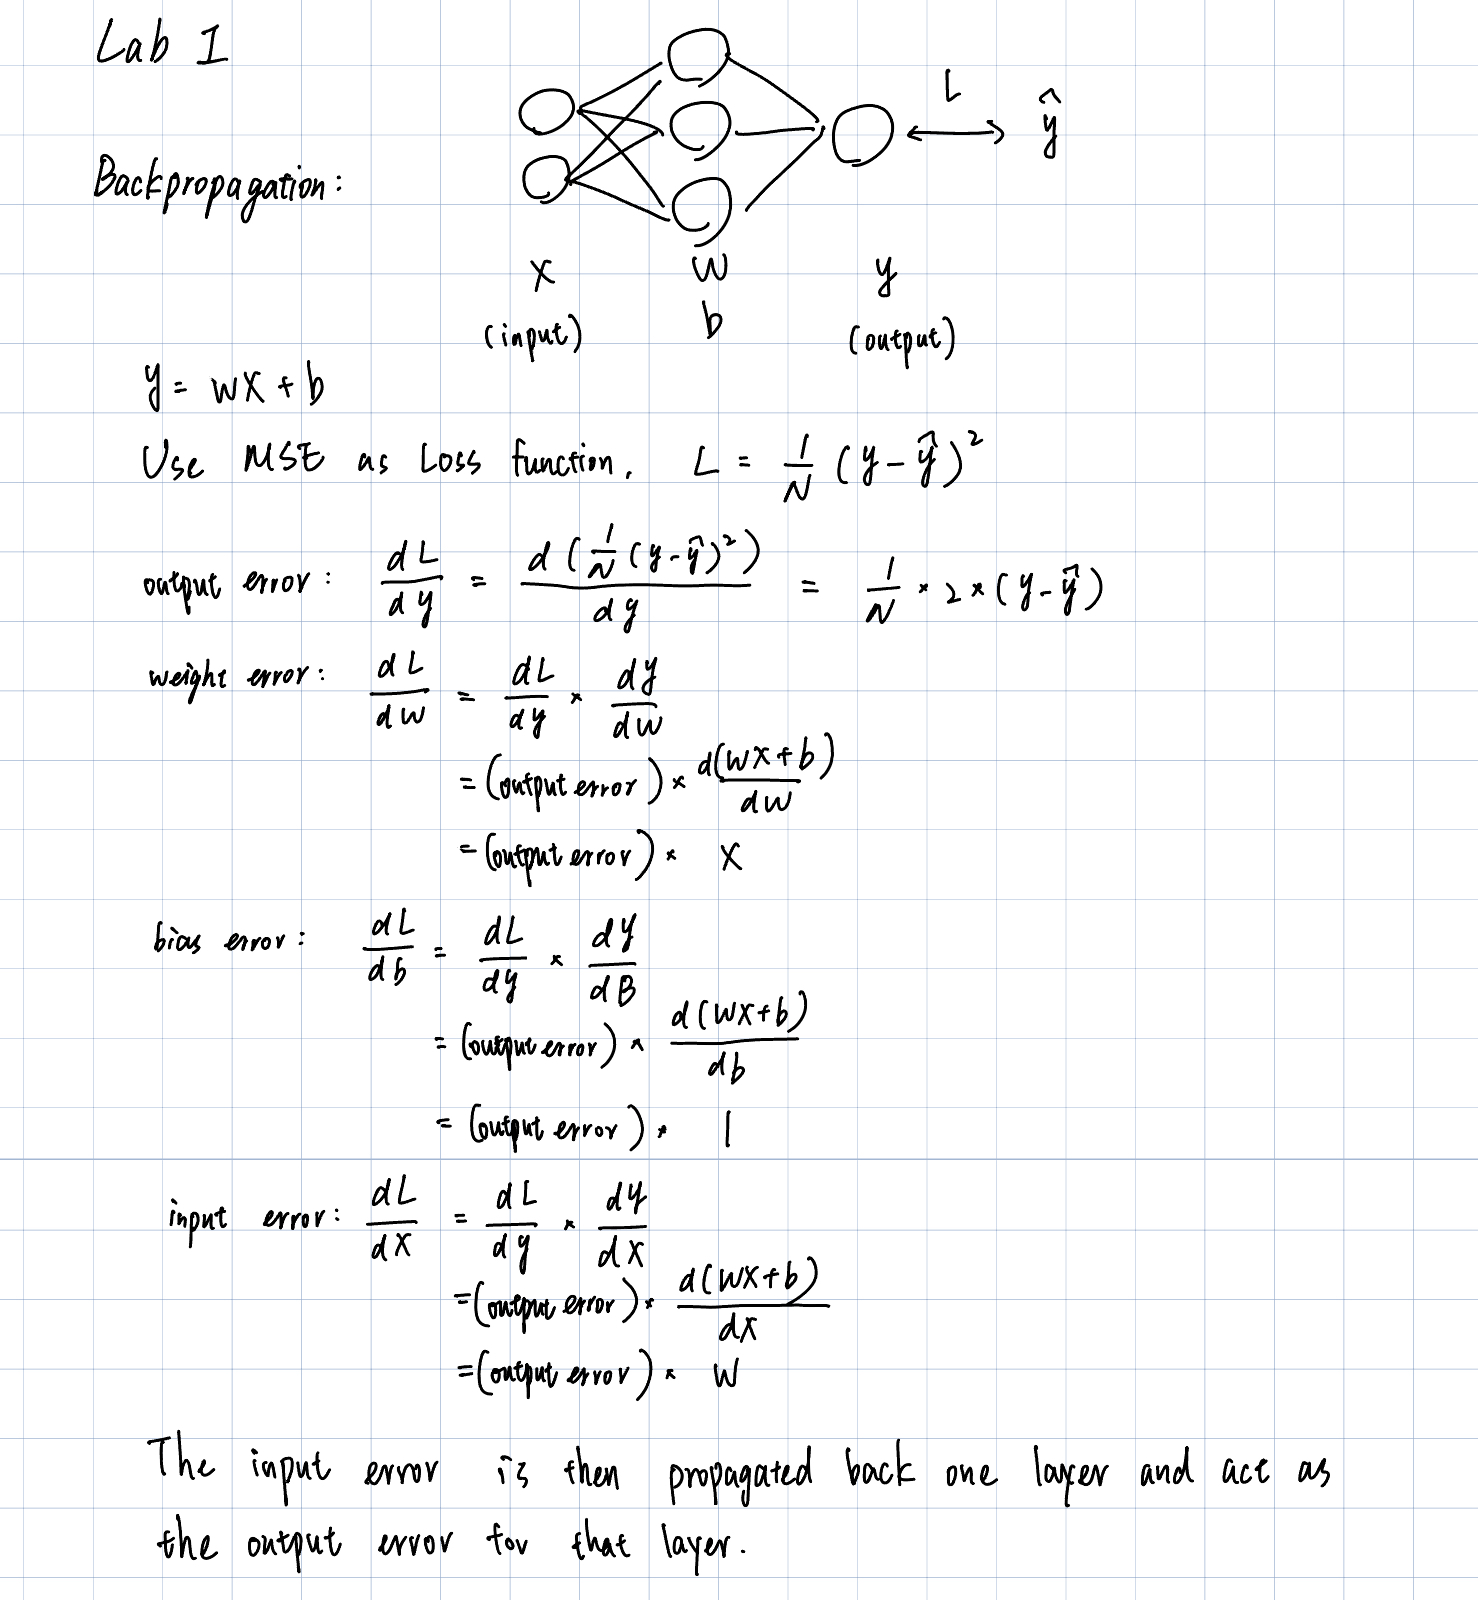 Lab 1
L
ŷ
Backpropagation:
x w y
(input) b (output)
y = wx + b
Use MSE as Loss function. L = 1/N (y - ŷ)²
output error: dL/dy = d(1/N (y - ŷ)²)/dy = 1/N * 2 * (y - ŷ)
weight error: dL/dw = dL/dy * dy/dw
= (output error) * d(wx + b)/dw
= (output error) * x
bias error: dL/db = dL/dy * dy/dB
= (output error) * d(wx+b)/db
= (output error) * 1
input error: dL/dx = dL/dy * dy/dx
= (output error) * d(wx+b)/dx
= (output error) * w
The input error is then propagated back one layer and act as
the output error for that layer.